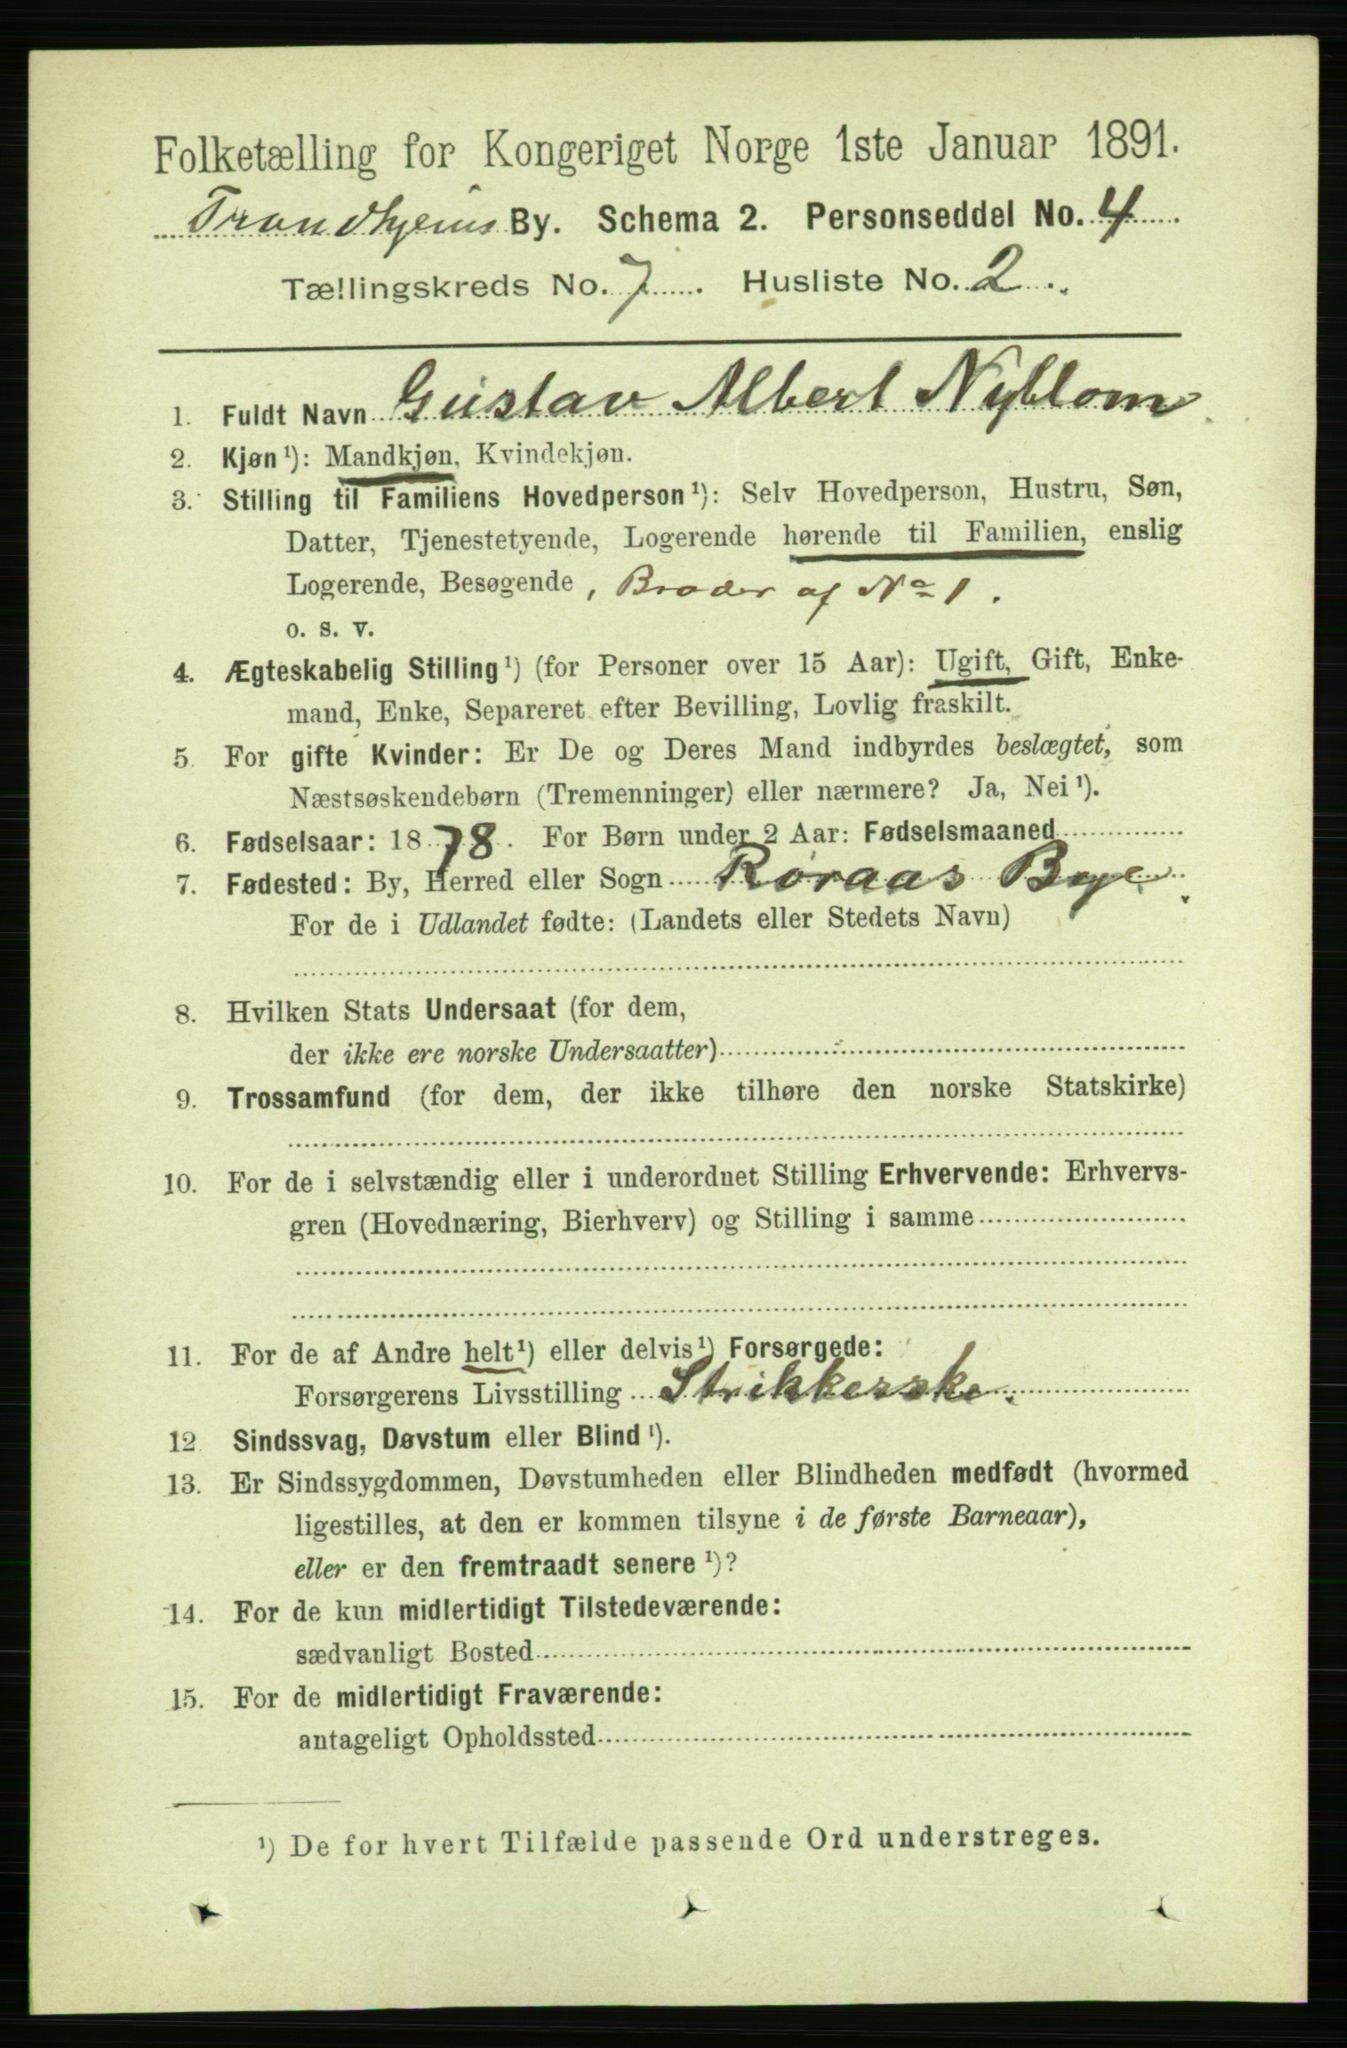 Folketælling for Kongeriget Norge 1ste Januar 1891.
Trondhjems By. Schema 2. Personseddel No. 4
Tællingskreds No. 7. Husliste No. 2.
1. Fuldt Navn Gustav Albert Nyblom
2. Kjøn¹): Mandkjøn, Kvindekjøn.
3. Stilling til Familiens Hovedperson¹): Selv Hovedperson, Hustru, Søn,
Datter, Tjenestetyende, Logerende hørende til Familien, enslig
Logerende, Besøgende, Broder af No 1.
o. s. v.
4. Ægteskabelig Stilling¹) (for Personer over 15 Aar): Ugift, Gift, Enke-
mand, Enke, Separeret efter Bevilling, Lovlig fraskilt.
5. For gifte Kvinder: Er De og Deres Mand indbyrdes beslægtet, som
Næstsøskendebørn (Tremenninger) eller nærmere? Ja, Nei¹).
6. Fødselsaar: 1878. For Børn under 2 Aar: Fødselsmaaned
7. Fødested: By, Herred eller Sogn Røraas Bye.
For de i Udlandet fødte: (Landets eller Stedets Navn)
8. Hvilken Stats Undersaat (for dem,
der ikke ere norske Undersaatter)
9. Trossamfund (for dem, der ikke tilhøre den norske Statskirke)
10. For de i selvstændig eller i underordnet Stilling Erhvervende: Erhvervs-
gren (Hovednæring, Bierhverv) og Stilling i samme
11. For de af Andre helt¹) eller delvis¹) Forsørgede:
Forsørgerens Livsstilling Strikkerske.
12. Sindssvag, Døvstum eller Blind¹).
13. Er Sindssygdommen, Døvstumheden eller Blindheden medfødt (hvormed
ligestilles, at den er kommen tilsyne i de første Barneaar),
eller er den fremtraadt senere¹)?
14. For de kun midlertidigt Tilstedeværende:
sædvanligt Bosted
15. For de midlertidigt Fraværende:
antageligt Opholdssted
¹) De for hvert Tilfælde passende Ord understreges.